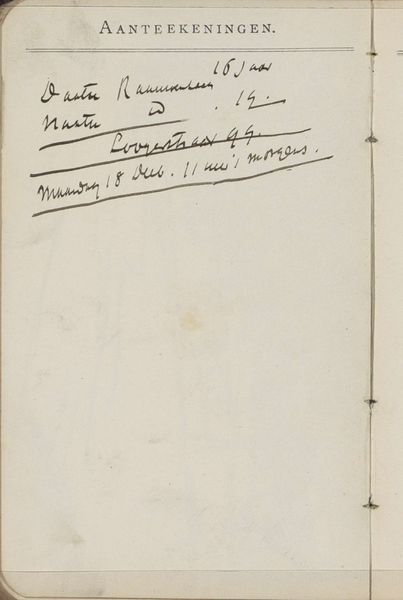 AANTEEKENINGEN.
16 Jaar
Daatu
Naatu D . 19.
99.
Maandag 18 Dec. 11 uur 's morgens.